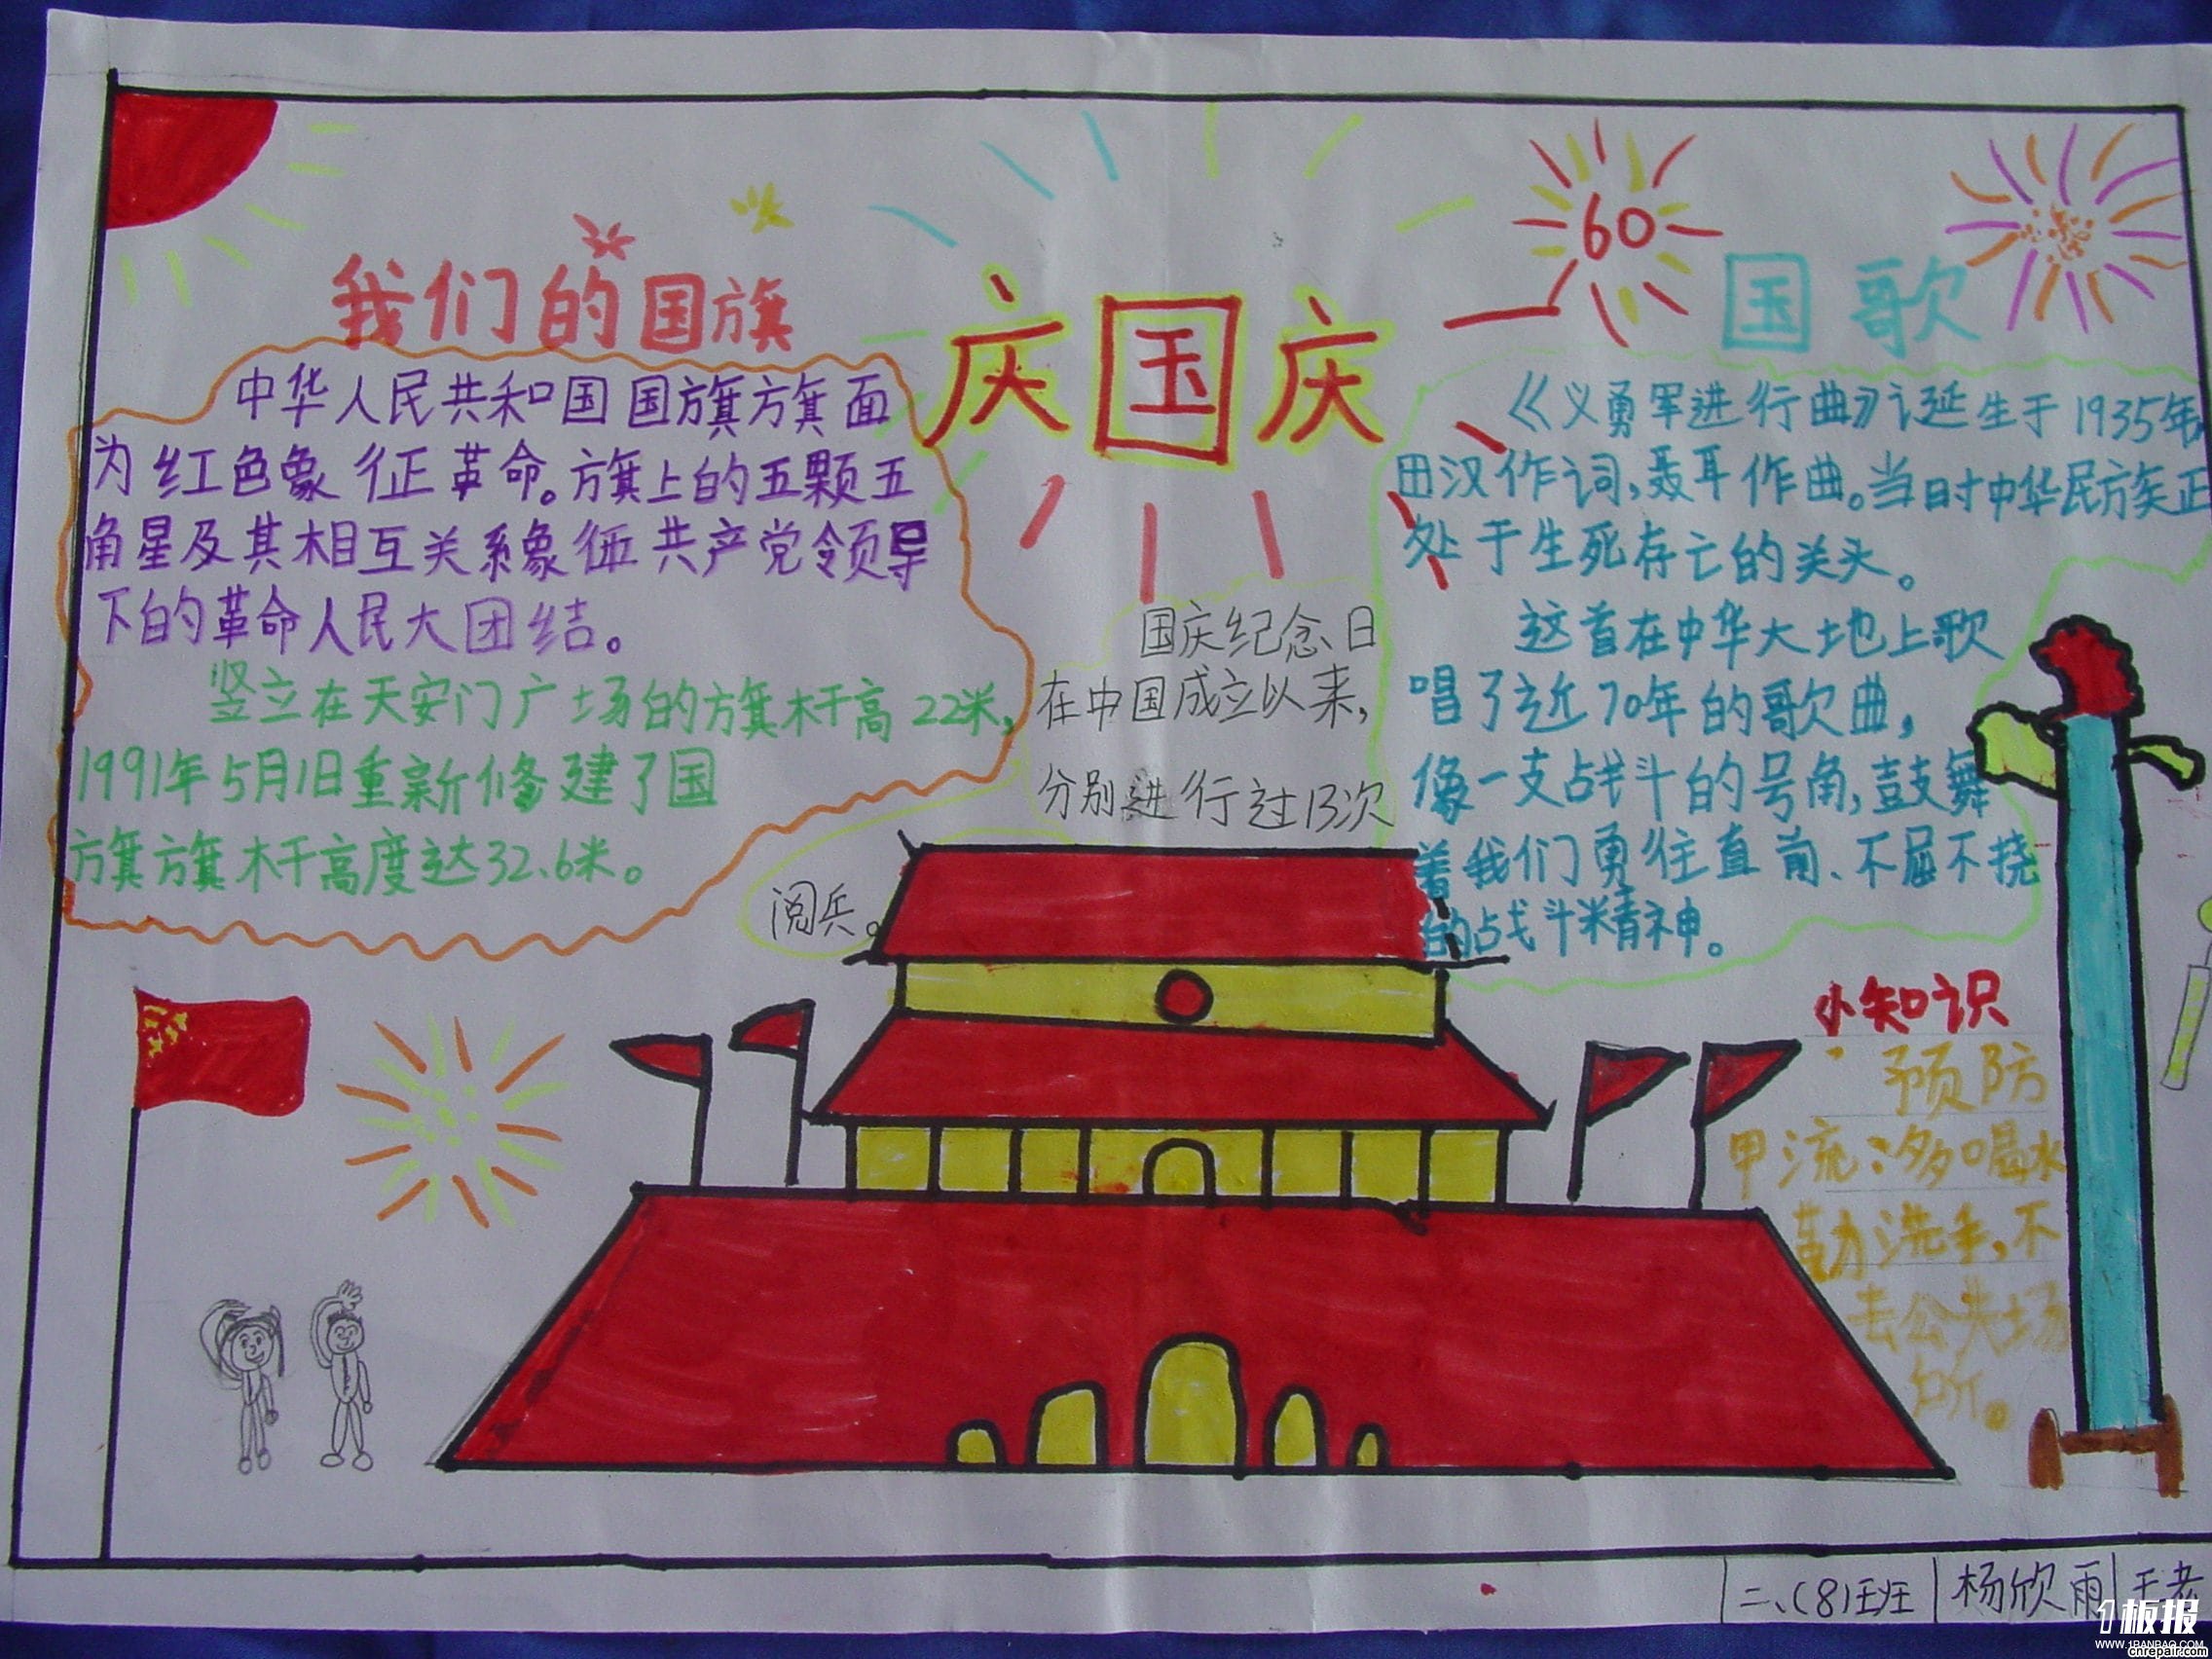 我们的国旗
中华人民共和国国旗旗面
为红色象征革命。旗上的五颗五
角星及其相互关系象征共产党领导
下的革命人民大团结。
竖立在天安门广场的旗杆高22米,
1991年5月1日重新修建了国
旗旗杆高度达32.6米。
庆国庆
国庆纪念日
在中国成立以来,
分别进行过13次
阅兵。
60
国歌
《义勇军进行曲》诞生于1935年,
田汉作词,聂耳作曲。当时中华民族正
处于生死存亡的关头。
这首在中华大地上歌
唱了近70年的歌曲,
像一支战斗的号角,鼓舞
着我们勇往直前、不屈不挠
的战斗精神。
小知识
预防
甲流:多喝水
勤洗手,不
去公共场
所。
二、(8)班 杨欣雨 王老
1板报
WWW.1BANBAO.COM
cnrepair.com